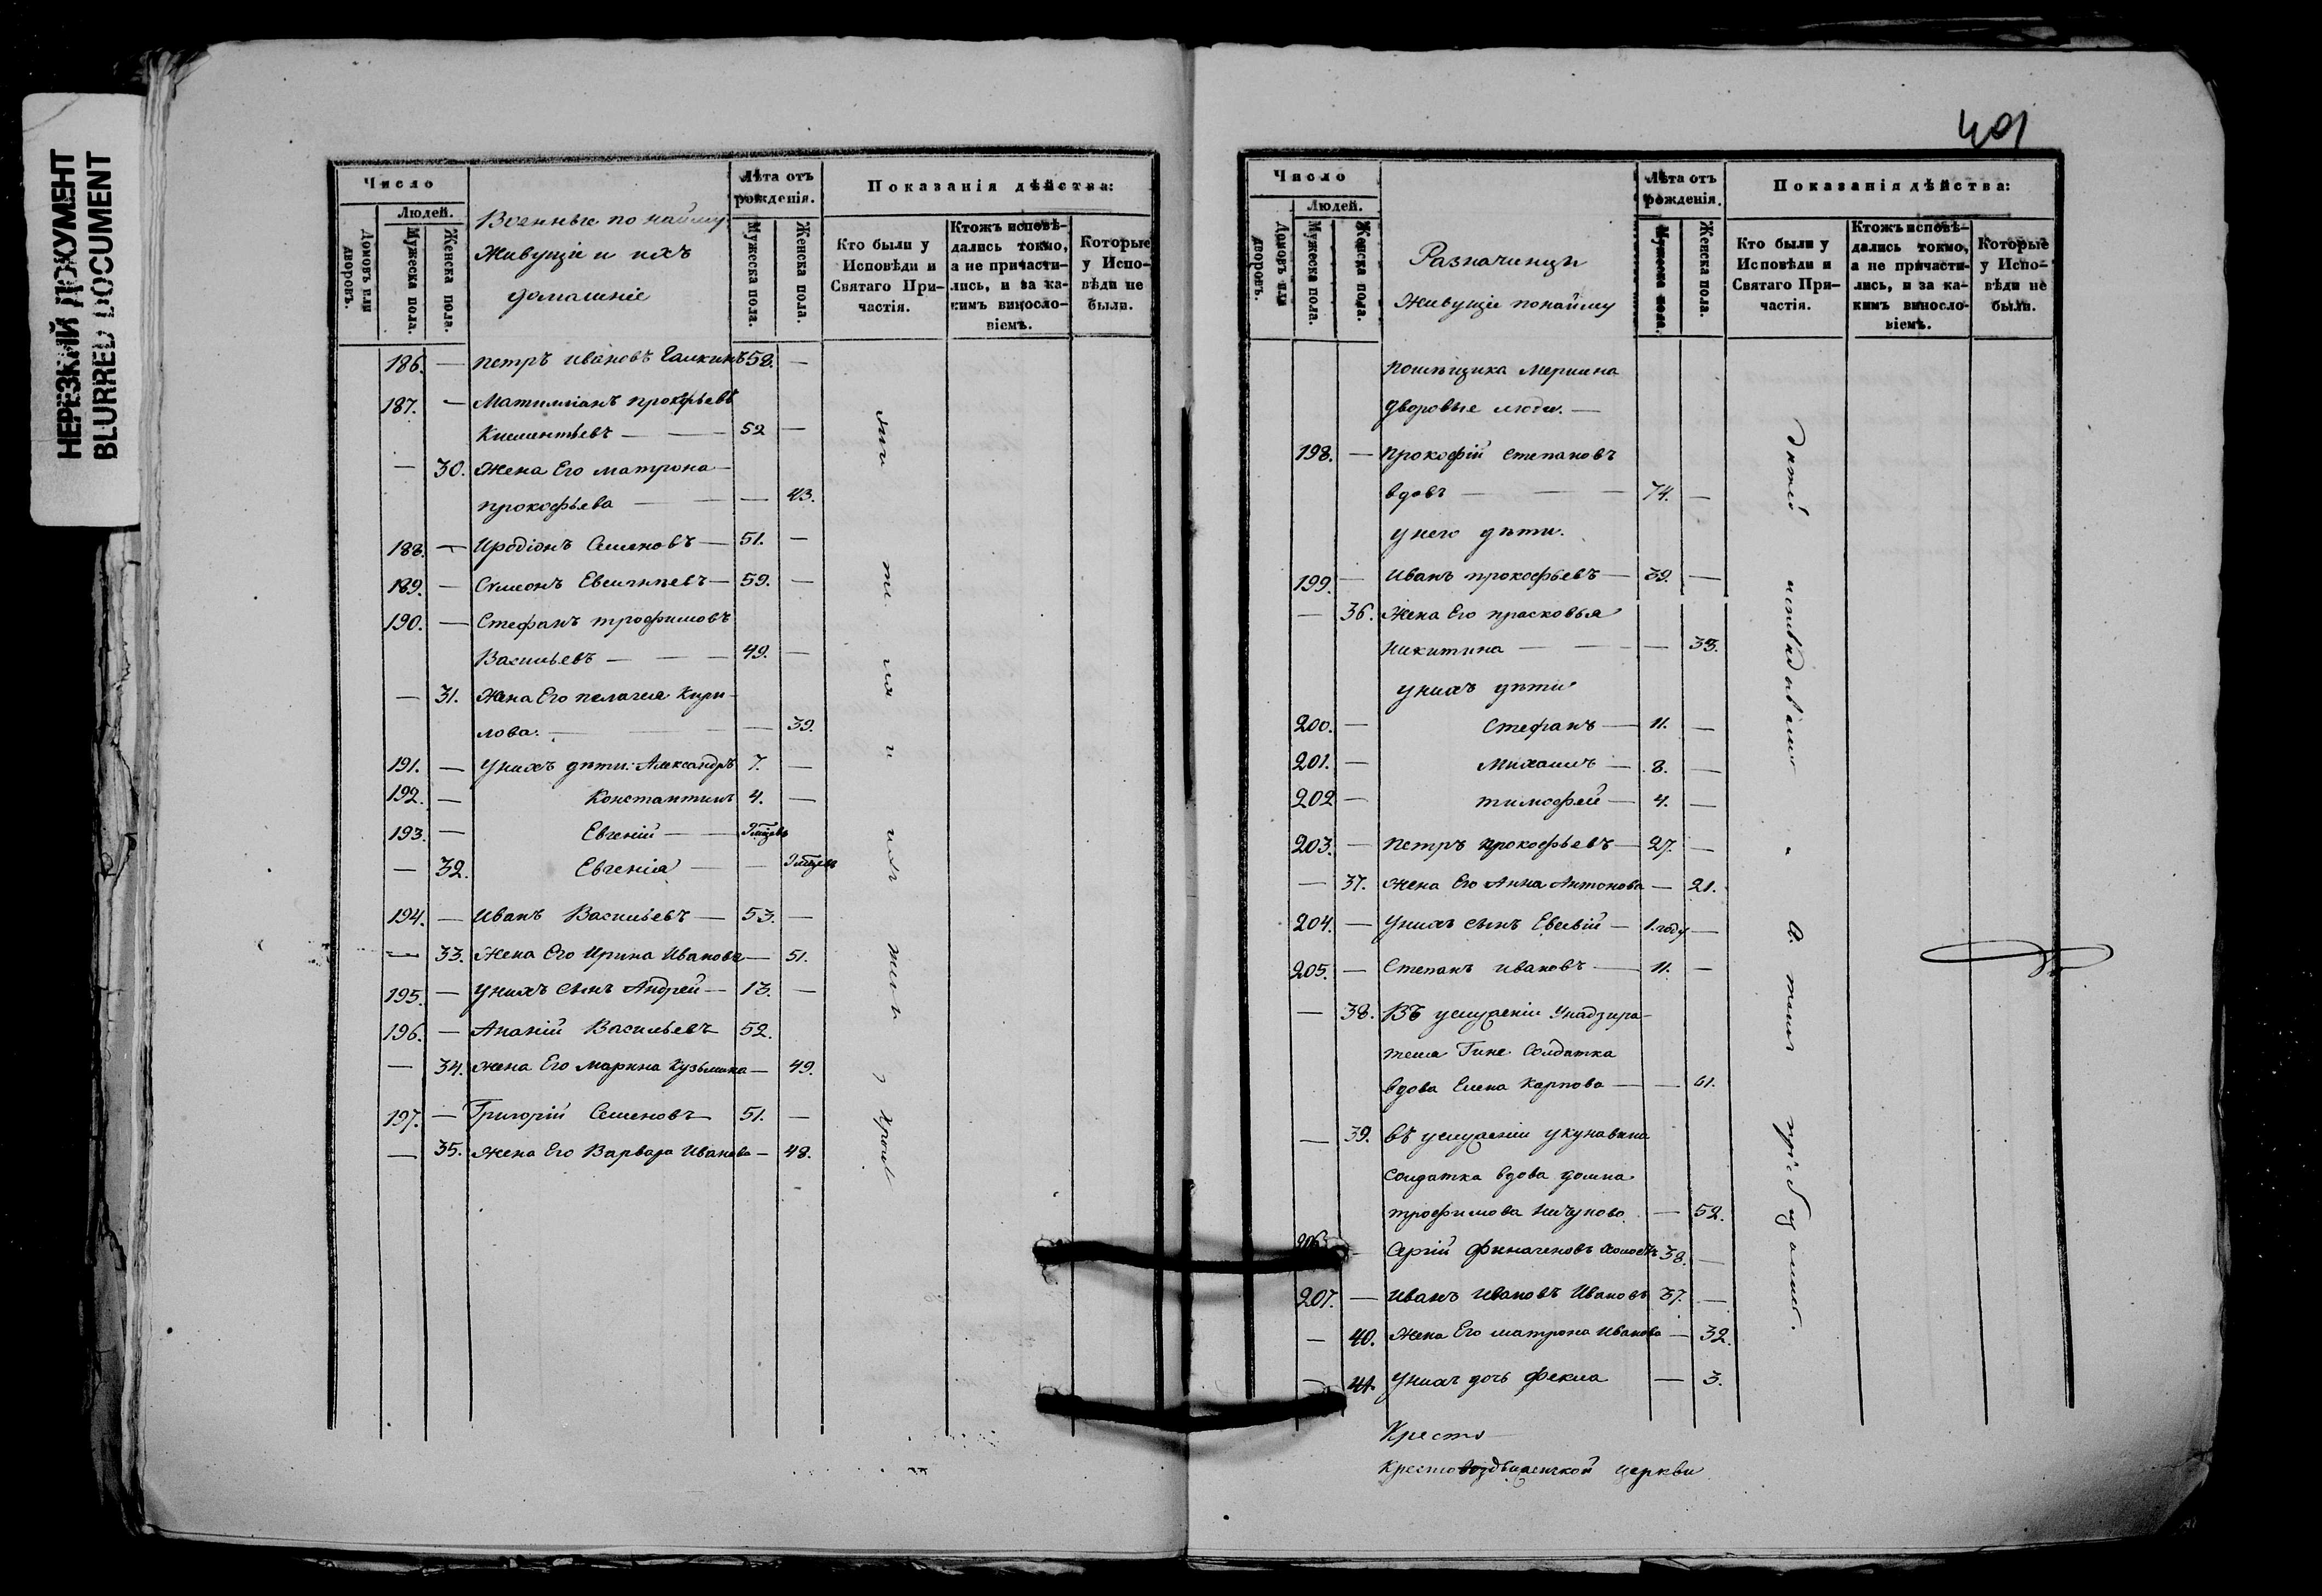 НЕРЕЗКИЙ ДОКУМЕНТ
BLURRED DOCUMENT
Число
Людей.
Домовъ или дворовъ.
Мужеска пола.
Женска пола.
Военные по найму
Живущіе и ихъ
домашніе
Лѣта отъ рожденія.
Мужеска пола.
Женска пола.
Показанія дѣйства:
Кто были у Исповѣди и Святаго Причастія.
Ктожъ исповѣдались токмо, а не причастились, и за какимъ винословіемъ.
Которые у Исповѣди не были.
186. — Петръ Ивановъ Галкинъ 58. —
187. — Прокофьевъ
— 52 —
— 30. Жена Его Матрона —
Прокофьева — — — 43.
188. — Иродіонъ Семеновъ — 51. —
189. — Симеонъ — 59. —
190. — Стефанъ Трофимовъ
Васильевъ — — 49. —
— 31. Жена Его Пелагея Кури-
лова. — — 39.
191. — Унихъ дѣти: Александръ 7. —
192. — Константинъ 4. —
193. — Евгеній —
— 32. Евгенія — —
194. — Иванъ Васильевъ — 53. —
— 33. Жена Его Ирина Иванова — 51.
195. — Унихъ сынъ Андрей — 13. —
196. — Ананій Васильевъ 52.
— 34. Жена Его Марина Кузьмина — 49.
197. — Григорій Семеновъ 51. —
— 35. Жена Его Варвара Иванова — 48.
401
Число
Людей.
Домовъ или дворовъ.
Мужеска пола.
Женска пола.
Разначинцы
Живущіе понайму
Лѣта отъ рожденія.
Мужеска пола.
Женска пола.
Показанія дѣйства:
Кто были у Исповѣди и Святаго Причастія.
Ктожъ исповѣдались токмо, а не причастились, и за какимъ винословіемъ.
Которые у Исповѣди не были.
Помѣщика
дворовые люди. —
198. — Прокофій Степановъ
вдовъ — — 74. —
унего дѣти.
199. — Иванъ Прокофьевъ — 39. —
— 36. Жена Его Прасковья
Никитина — — — 33.
унихъ дѣти
200. — Стефанъ — 11. —
201. — Михаилъ — 8. —
202 — Тимофей — 4. —
203. — Петръ Прокофьевъ — 27. —
— 37. Жена Его Анна Антонова — 21.
204. — Унихъ сынъ Евсевій — 1. году —
205. — Степанъ Ивановъ — 11. —
— 38. Въ услуженіи Унадзира-
теля Солдатка
вдова Елена Карпова — — 61.
— 39. Въ услуженіи
Солдатка вдова Домна
Трофимова — 52.
206. — Сергій 38. —
207. — Иванъ Ивановъ Ивановъ 37. —
— 40. Жена Его Матрона Иванова — 32.
— 41. Унихъ дочь Фекла — 3.
Кресто
Крестовоздвиженской церкви